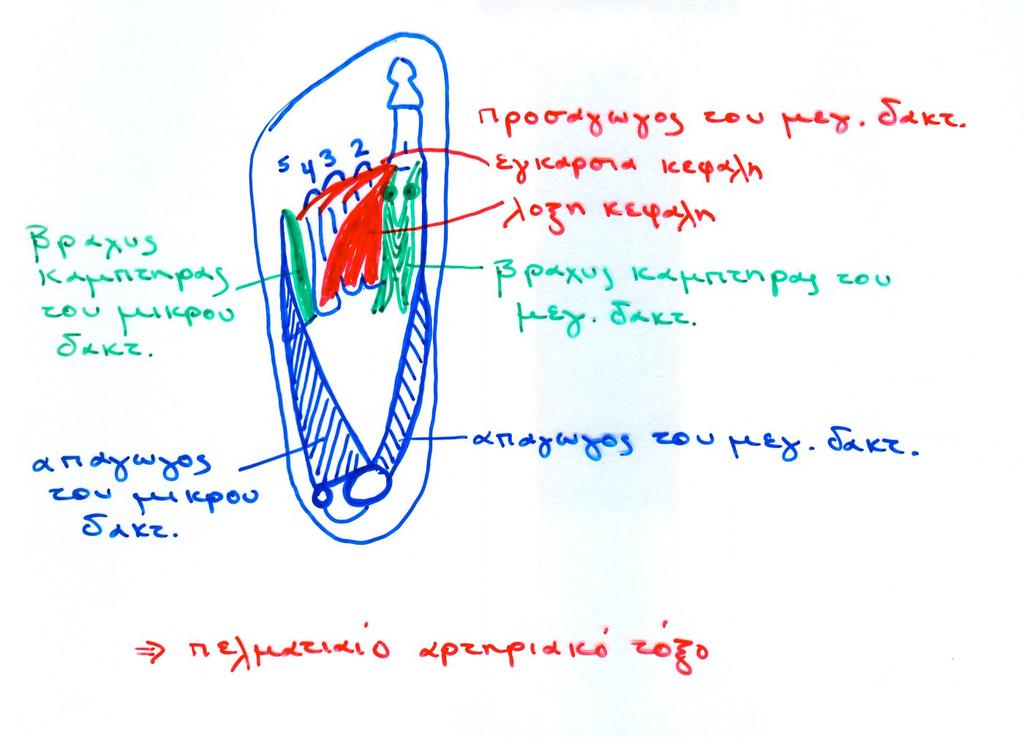 προσαγωγος του μεγ. δακτ.
εγκαρσια κεφαλη
λοξη κεφαλη
5 4 3 2
βραχυς
καμπτηρας
του μικρου
δακτ.
βραχυς καμπτηρας του
μεγ. δακτ.
απαγωγος του μεγ. δακτ.
απαγωγος
του μικρου
δακτ.
⇒ πελματιαίο αρτηριακό τόξο